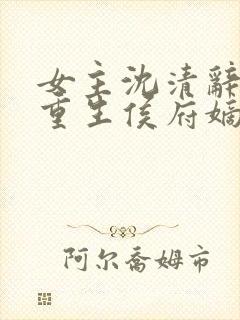 女主沈清辞
重生侯府嫡
阿尔乔姆市